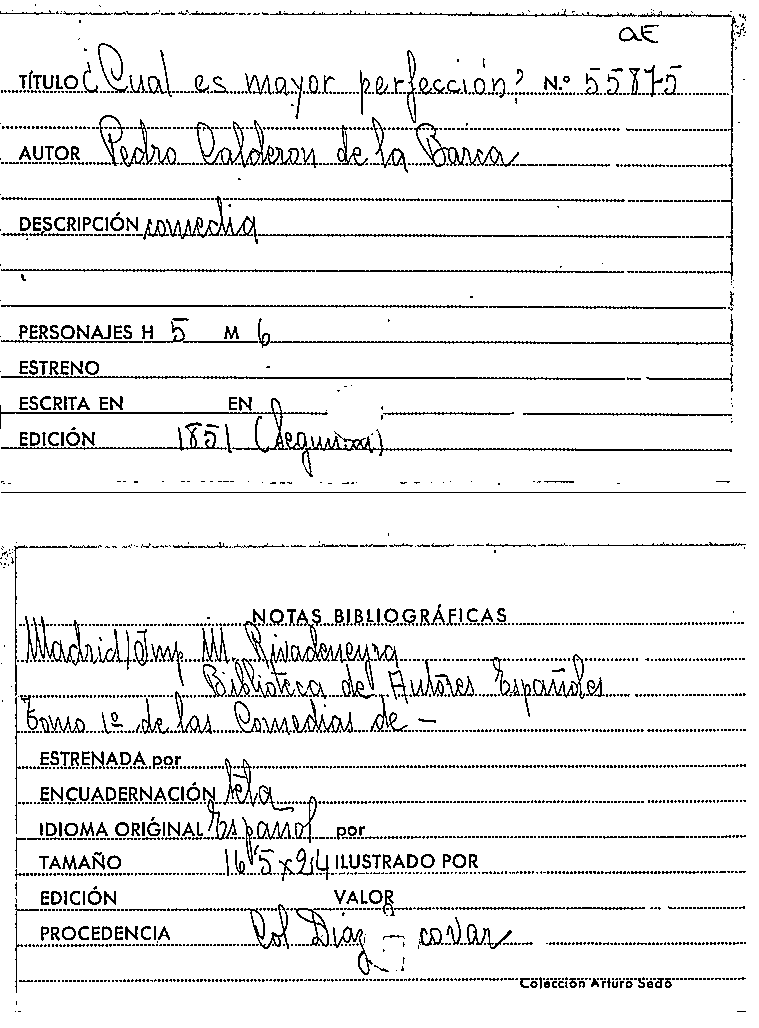 aE
TÍTULO ¿Cual es mayor perfección? N.º 55875
AUTOR Pedro Calderon de la Barca
DESCRIPCIÓN comedia
PERSONAJES H 5 M 6
ESTRENO
ESCRITA EN EN
EDICIÓN 1851 (
NOTAS BIBLIOGRÁFICAS
Madrid/Imp M. Rivadoneyra
Biblioteca de Autores Españoles
Tomo 1º de las Comedias de -
ESTRENADA por
ENCUADERNACIÓN tela
IDIOMA ORIGINAL Español por
TAMAÑO 16'5x24 ILUSTRADO POR
EDICIÓN VALOR
PROCEDENCIA Col Díaz -
Colección Arturo Sedó